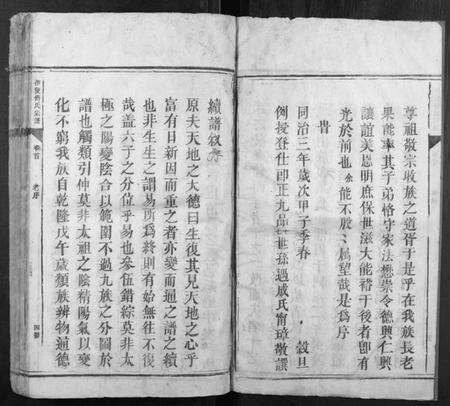 尊祖敬宗收族之道胥于是乎在我族長老
果能率其子弟恪守家法懋崇令德興仁興
讓誼美恩明庶保世滋大能啓于後者卽有
光於前也余能不殷殷屬望哉是爲序
旹
同治三年歲次甲子季春 穀旦
例授登仕郎正九品 世孫遇咸氏甯璋敬譔
續譜敘
原夫天地之大德曰生復其見天地之心乎
富有日新因而重之者亦變而通之譜之續
也非生生之謂易所爲終則有始無往不復
哉盖六子之分位乎易也參伍錯綜莫非太
極之陽變陰合以範圍不過九族之分圖於
譜也觸類引伸莫非太祖之陰精陽氣以變
化不窮我族自乾隆戊午歲類族辨物通德
氏宗譜
卷首
老序
四